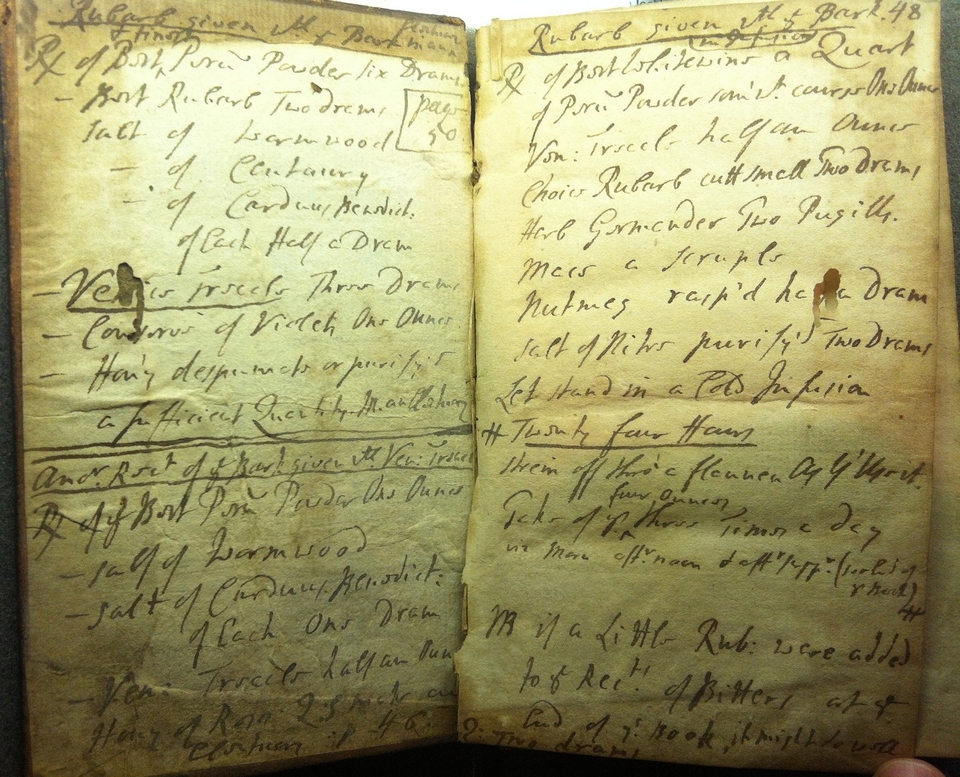 Rubarb given wth ye Bark
& finest
℞ of Best Peru: Powder six Drams
– Best Rubarb Two drams
page
50
salt of wormwood
– of Centaury
– of Carduus Benedict:
of Each Half a Dram
– Venice Treacle Three Drams
– Conserve of Violets One Ounce
– Hony despumate or purify'd
a sufficient Quantity M.
Anor. Rect of ye Bark given wth Ven: Treacle
℞ of ye Best Peru: Powder One Ounce
– salt of Wormwood
– salt of Carduus Benedict:
of Each One Dram
– Ven: Treacle half an Oun
Hony of Roses Q S make an
Electuary :p 46:
Rubarb given wth ye Bark. 48
in Infusion
℞ of Best Whitewine a Quart
of Peru: Powder course One Ounce
Ven: Treacle half an Ounce
Choice Rubarb cutt small Two Drams
Herb Germander Two Pugills.
Mace a scruple
Nutmeg rasp'd half a Dram
salt of Nitre purify'd Two Drams
Let stand in a Cold Infusion
# Twenty four Hours
strein off thro' a flannen As
four Ounces
Take of ys three Times a day
viz morn aftr noon & aftr suppr:
#
NB if a Little Rub: were added
to ye Rect! of Bitters at ye
End of ys Book, it might do well
Q: Two drams